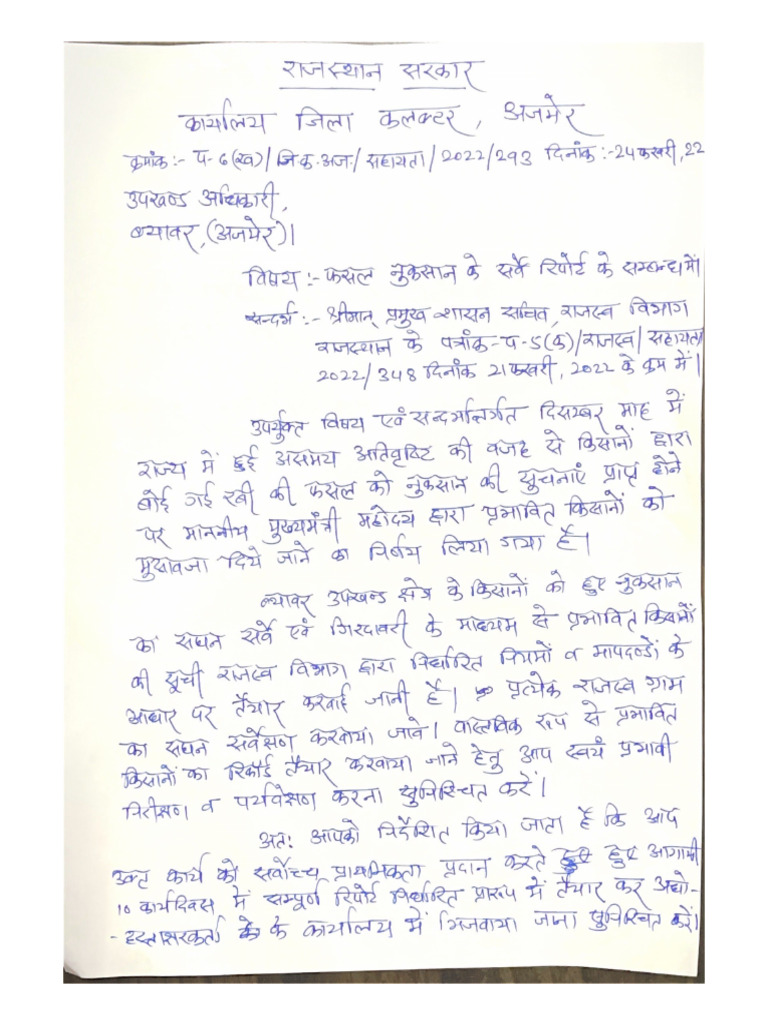 राजस्थान सरकार
कार्यालय जिला कलक्टर, अजमेर
क्रमांक:- प-6(ख)/जि.क.अज./सहायता/2022/293 दिनांक:-24 फरवरी, 22
उपखण्ड अधिकारी,
ब्यावर, (अजमेर)।
विषय:- फसल नुकसान के सर्वे रिपोर्ट के सम्बन्ध में।
सन्दर्भ:- श्रीमान् प्रमुख शासन सचिव, राजस्व विभाग
राजस्थान के पत्रांक-प-5(क)/राजस्व/सहायता
2022/348 दिनांक 21 फरवरी, 2022 के क्रम में।
उपर्युक्त विषय एवं सन्दर्भान्तर्गत दिसम्बर माह में
राज्य में हुई असमय अतिवृष्टि की वजह से किसानों द्वारा
बोई गई रबी की फसल को नुकसान की सूचनाएं प्राप्त होने
पर माननीय मुख्यमंत्री महोदय द्वारा प्रभावित किसानों को
मुआवजा दिये जाने का निर्णय लिया गया है।
ब्यावर उपखण्ड क्षेत्र के किसानों को हुए नुकसान
का सघन सर्वे एवं गिरदावरी के माध्यम से प्रभावित किसानों
की सूची राजस्व विभाग द्वारा निर्धारित नियमों व मापदण्डों के
आधार पर तैयार करवाई जानी है। प्रत्येक राजस्व ग्राम
का सघन सर्वेक्षण करवाया जावे। वास्तविक रूप से प्रभावित
किसानों का रिकॉर्ड तैयार करवाया जाने हेतु आप स्वयं प्रभावी
निरीक्षण व पर्यवेक्षण करना सुनिश्चित करें।
अतः आपको निर्देशित किया जाता है कि आप
उक्त कार्य को सर्वोच्च प्राथमिकता प्रदान करते हुए आगामी
10 कार्यदिवस में सम्पूर्ण रिपोर्ट निर्धारित प्रारूप में तैयार कर अधो-
-हस्ताक्षरकर्ता के कार्यालय में भिजवाया जाना सुनिश्चित करें।